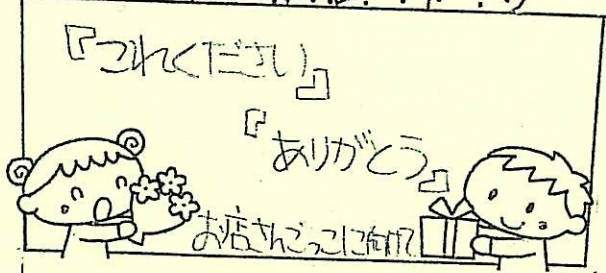 『これください』
『ありがとう』
お店さんごっこに向けて